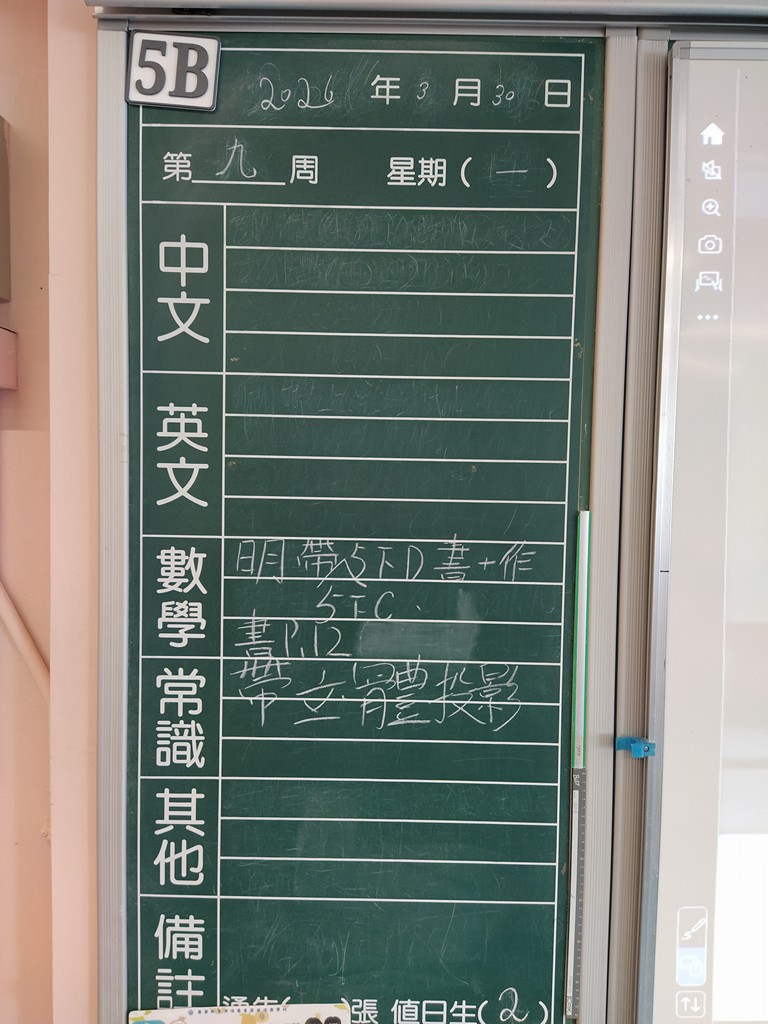 5B
2026 年 3 月 30 日
第 九 周 星期 ( 一 )
中文
英文
數學
明帶5下D書+作
5下C.
書P.12
常識
帶立體投影
其他
備註
通告( )張 值日生( 2 )